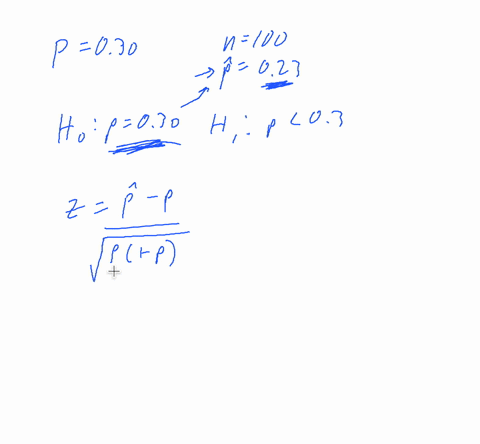 P = 0.30
n = 100
→ p̂ = 0.23
H₀ : p = 0.30 H₁ : p < 0.3
z = p̂ - p
√p(1-p)